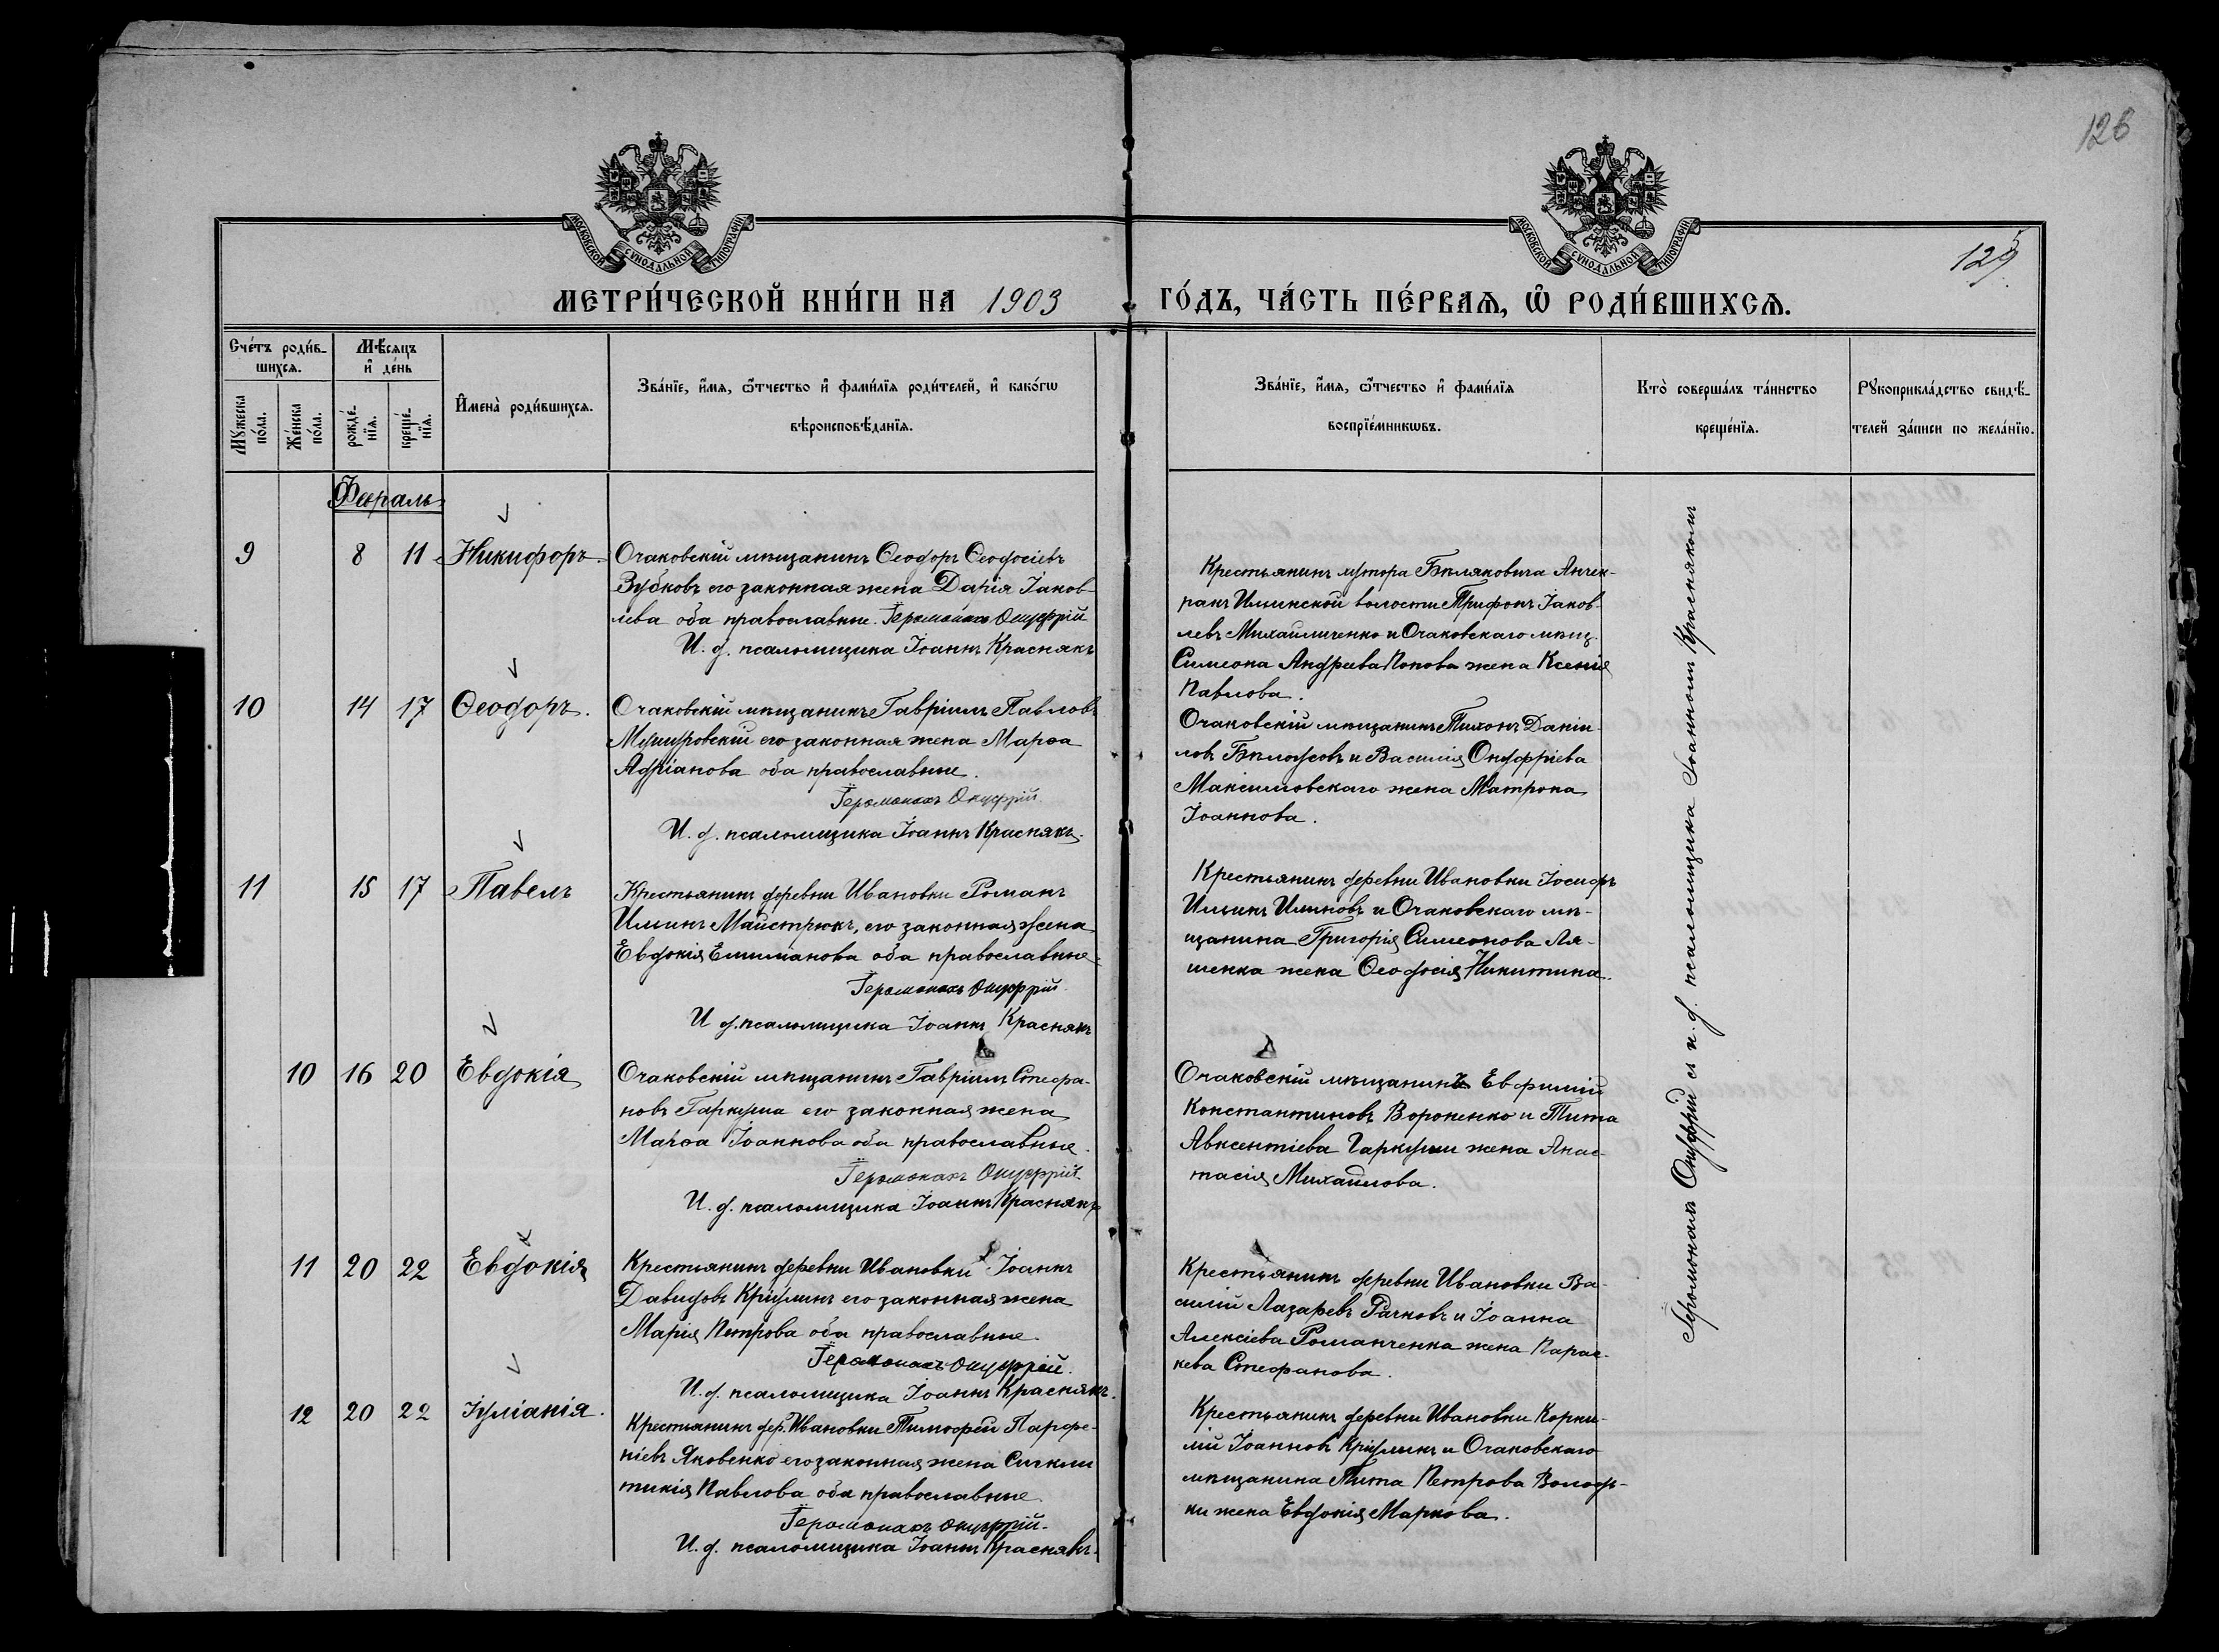 126
125
МОСКОВСКОЙ СѴНОДАЛЬНОЙ ТИПОГРАФІИ
МОСКОВСКОЙ СѴНОДАЛЬНОЙ ТИПОГРАФІИ
МЕТРИ́ЧЕСКОЙ КНИ́ГИ НА 1903 ГО́ДЪ, ЧА́СТЬ ПЕ́РВАѦ, Ѽ РОДИ́ВШИХСѦ.
Сче́тъ роди́в-
шихсѧ.
Мꙋжеска
по́ла.
Же́нска
по́ла.
Мѣ́сѧцъ
и҆ де́нь
рожде́-
нїѧ.
креще́-
нїѧ.
И҆мена̀ роди́вшихсѧ.
Зва́нїе, и҆́мѧ, ѻ҆́тчество и҆ фами́лїѧ роди́телей, и҆ како́гѡ
вѣроисповѣ́данїѧ.
Зва́нїе, и҆́мѧ, ѻ҆́тчество и҆ фами́лїѧ
воспрїе́мникѡвъ.
Кто̀ соверша́лъ та́инство
креще́нїѧ.
Рꙋкоприкла́дство свидѣ́-
телей за́писи по жела́нїю.
Февраль
9 8 11 Никифоръ
Очаковскій мѣщанинъ Ѳеодоръ Ѳеодосіевъ
Зубковъ его законная жена Дарія Іаков-
лева оба православные. Іеромонахъ Онуфрій
И. д. псаломщика Іоаннъ Краснякъ
Крестьянинъ хутора Бѣляковича Анчек-
ракъ Ильинской волости Трифонъ Іаков-
левъ Михайличенко и Очаковскаго мѣщ.
Симеона Андреева Попова жена Ксенія
Павлова.
10 14 17 Ѳеодоръ.
Очаковскій мѣщанинъ Гавріилъ Павловъ
его законная жена Марѳа
Адріанова оба православные.
Іеромонахъ Онуфрій
И. д. псаломщика Іоаннъ Краснякъ.
Очаковскій мѣщанинъ Тихонъ Даніи-
ловъ Бѣлоусовъ и Василія Онуфріева
Максимовскаго жена Матрона
Іоаннова.
11 15 17 Павелъ
Крестьянинъ деревни Ивановки Романъ
Ильинъ Майстрюкъ, его законная жена
Евдокія Емиліанова оба православные.
Іеромонахъ Онуфрій
И д. псаломщика Іоаннъ Краснякъ
Крестьянинъ деревни Ивановки Іосифъ
Ильинъ и Очаковскаго мѣ-
щанина Григорія Симеонова Ля-
шенка жена Ѳеодосія Никитина.
10 16 20 Евдокія
Очаковскій мѣщанинъ Гавріилъ Стефа-
новъ Гаркуша его законная жена
Марѳа Іоаннова оба православные.
Іеромонахъ Онуфрій
И. д. псаломщика Іоаннъ Краснякъ
Очаковскій мѣщанинъ Евфимій
Константиновъ Вороненко и Тита
Авксентіева Гаркуши жена Анас-
тасія Михайлова.
11 20 22 Евдокія
Крестьянинъ деревни Ивановки Іоаннъ
Давидовъ его законная жена
Марія Петрова оба православные.
Іеромонахъ Онуфрій.
И. д. псаломщика Іоаннъ Краснякъ.
Крестьянинъ деревни Ивановки Ва-
силій Лазаревъ Рачковъ и Іоанна
Алексіева Романченка жена Парас-
кева Стефанова.
12 20 22 Іуліанія.
Крестьянинъ дер. Ивановки Тимофей Парфе-
ніевъ Яковенко его законная жена Сигкли
тикія Павлова оба православные
Іеромонахъ Онуфрій.
И. д. псаломщика Іоаннъ Краснякъ.
Крестьянинъ деревни Ивановки Корни-
лій Іоанновъ и Очаковскаго
мѣщанина Тита Петрова Володь-
ки жена Евдокія Маркова.
Іеромонахъ Онуфрій съ и. д. псаломщика Іоанномъ Краснякомъ